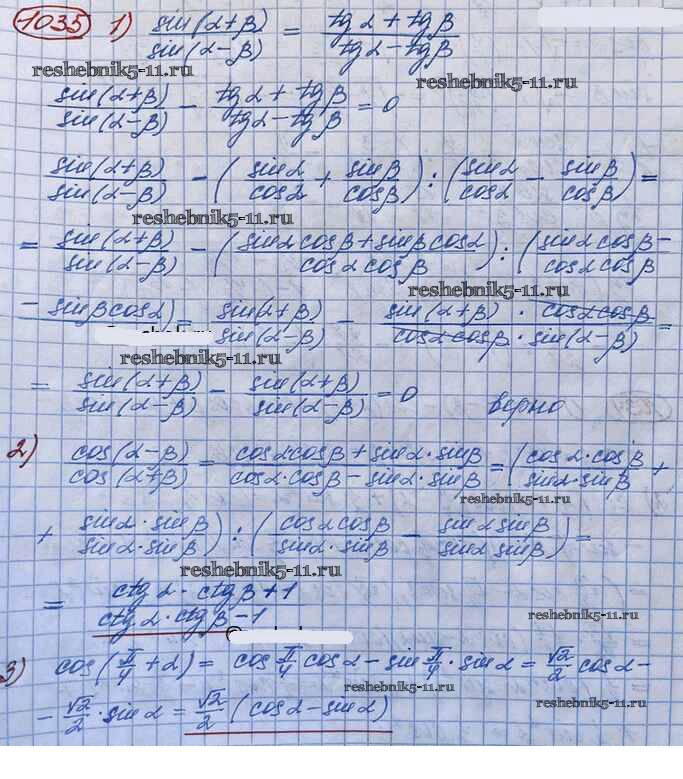 1035 1) sin(α+β)/sin(α-β) = tgα + tgβ/tgα - tgβ
reshebnik5-11.ru
sin(α+β)/sin(α-β) - tgα + tgβ/tgα - tgβ = 0
sin(α+β)/sin(α-β) - (sinα/cosα + sinβ/cosβ) : (sinα/cosα - sinβ/cosβ) =
reshebnik5-11.ru
= sin(α+β)/sin(α-β) - (sinα cosβ + sinβ cosα/cosα cosβ) : (sinα cosβ -/cosα cosβ
- sinβ cosα) = sin(α+β)/sin(α-β) - sin(α+β) · cosα cosβ/cosα cosβ · sin(α-β) =
reshebnik5-11.ru
= sin(α+β)/sin(α-β) - sin(α+β)/sin(α-β) = 0 верно
2) cos(α-β)/cos(α+β) = cosα·cosβ + sinα·sinβ/cosα·cosβ - sinα·sinβ = (cosα·cosβ/sinα·sinβ +
reshebnik5-11.ru
+ sinα·sinβ/sinα·sinβ) : (cosα cosβ/sinα·sinβ - sinα sinβ/sinα sinβ) =
reshebnik5-11.ru
= ctgα·ctgβ+1/ctgα·ctgβ-1
reshebnik5-11.ru
3) cos(π/4 + α) = cos π/4 cosα - sin π/4 · sinα = √2/2 cosα -
reshebnik5-11.ru
- √2/2 · sinα = √2/2 (cosα - sinα)
reshebnik5-11.ru